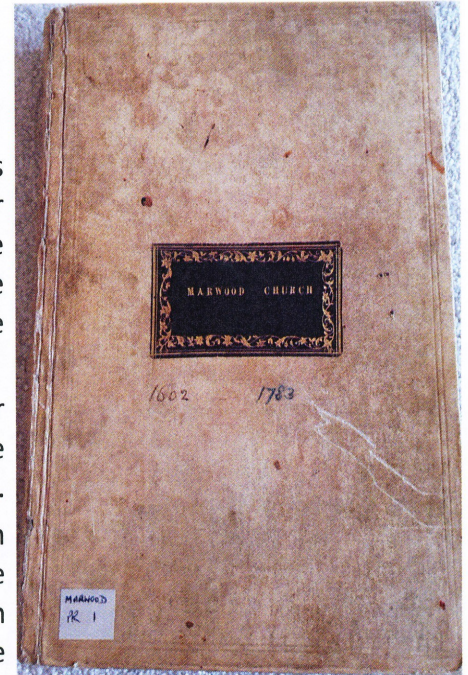 MARWOOD CHURCH
1602 - 1783
MARWOOD
PR 1